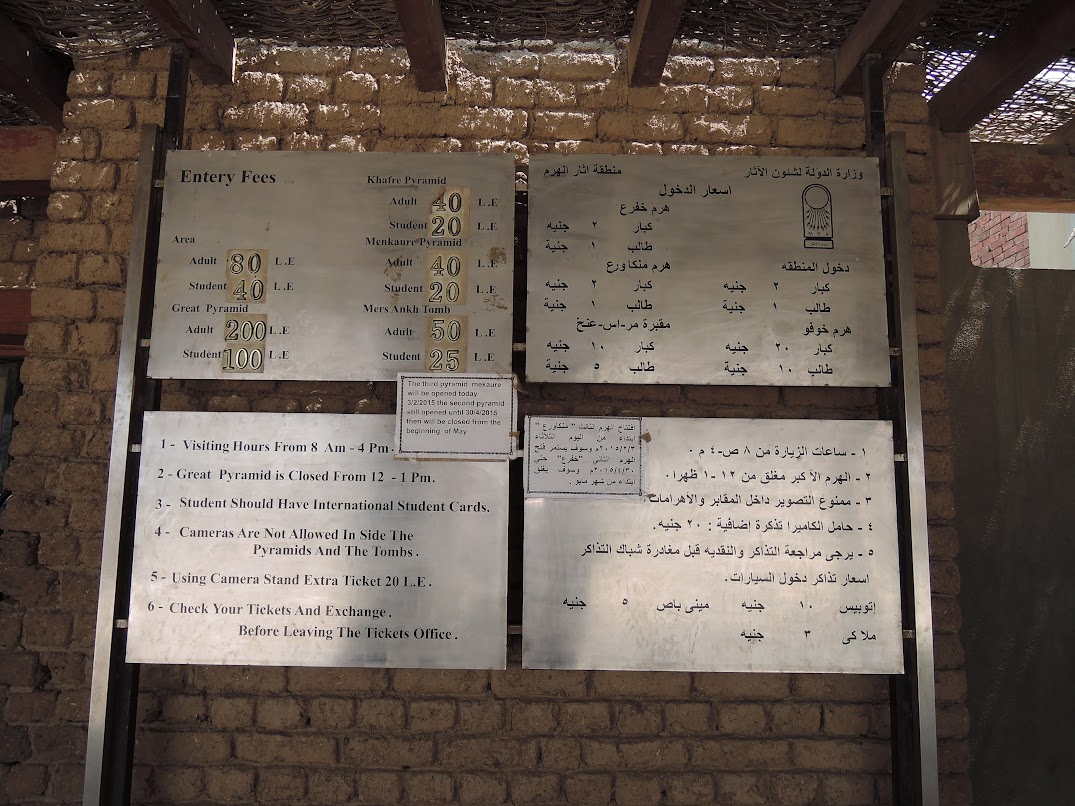 Entery Fees
Area
Adult 80 L.E
Student 40 L.E
Great Pyramid
Adult 200 L.E
Student 100 L.E
Khafre Pyramid
Adult 40 L.E
Student 20 L.E
Menkaure Pyramid
Adult 40 L.E
Student 20 L.E
Mers Ankh Tomb
Adult 50 L.E
Student 25 L.E
وزارة الدولة لشئون الآثار
منطقة اثار الهرم
اسعار الدخول
M S A
دخول المنطقه
كبار ٢ جنيه
طالب ١ جنية
هرم خوفو
كبار ٢٠ جنيه
طالب ١٠ جنية
هرم خفرع
كبار ٢ جنيه
طالب ١ جنية
هرم منكاورع
كبار ٢ جنيه
طالب ١ جنية
مقبرة مر-اس-عنخ
كبار ١٠ جنيه
طالب ٥ جنية
The third pyramid mekaure
will be opened today
3/2/2015 the second pyramid
still opened until 30/4/2015
then will be closed from the
beginning of May
1 - Visiting Hours From 8 Am - 4 Pm.
2 - Great Pyramid is Closed From 12 - 1 Pm.
3 - Student Should Have International Student Cards.
4 - Cameras Are Not Allowed In Side The
Pyramids And The Tombs .
5 - Using Camera Stand Extra Ticket 20 L.E .
6 - Check Your Tickets And Exchange .
Before Leaving The Tickets Office .
افتتاح الهرم الثالث " منكاورع "
ابتداء من اليوم الثلاثاء
٢٠١٥/٢/٣م وسوف يستمر فتح
الهرم الثاني "خفرع" حتى
٢٠١٥/٤/٣٠م وسوف يغلق
ابتداء من شهر مايو .
١ - ساعات الزيارة من ٨ ص-٤ م .
٢ - الهرم الأكبر مغلق من ١٢ -١ ظهرا .
٣ - ممنوع التصوير داخل المقابر والأهرامات.
٤ - حامل الكاميرا تذكرة إضافية : ٢٠ جنيه.
٥ - يرجى مراجعة التذاكر والنقديه قبل مغادرة شباك التذاكر
اسعار تذاكر دخول السيارات .
إتوبيس ١٠ جنيه مينى باص ٥ جنيه
ملاكى ٣ جنيه